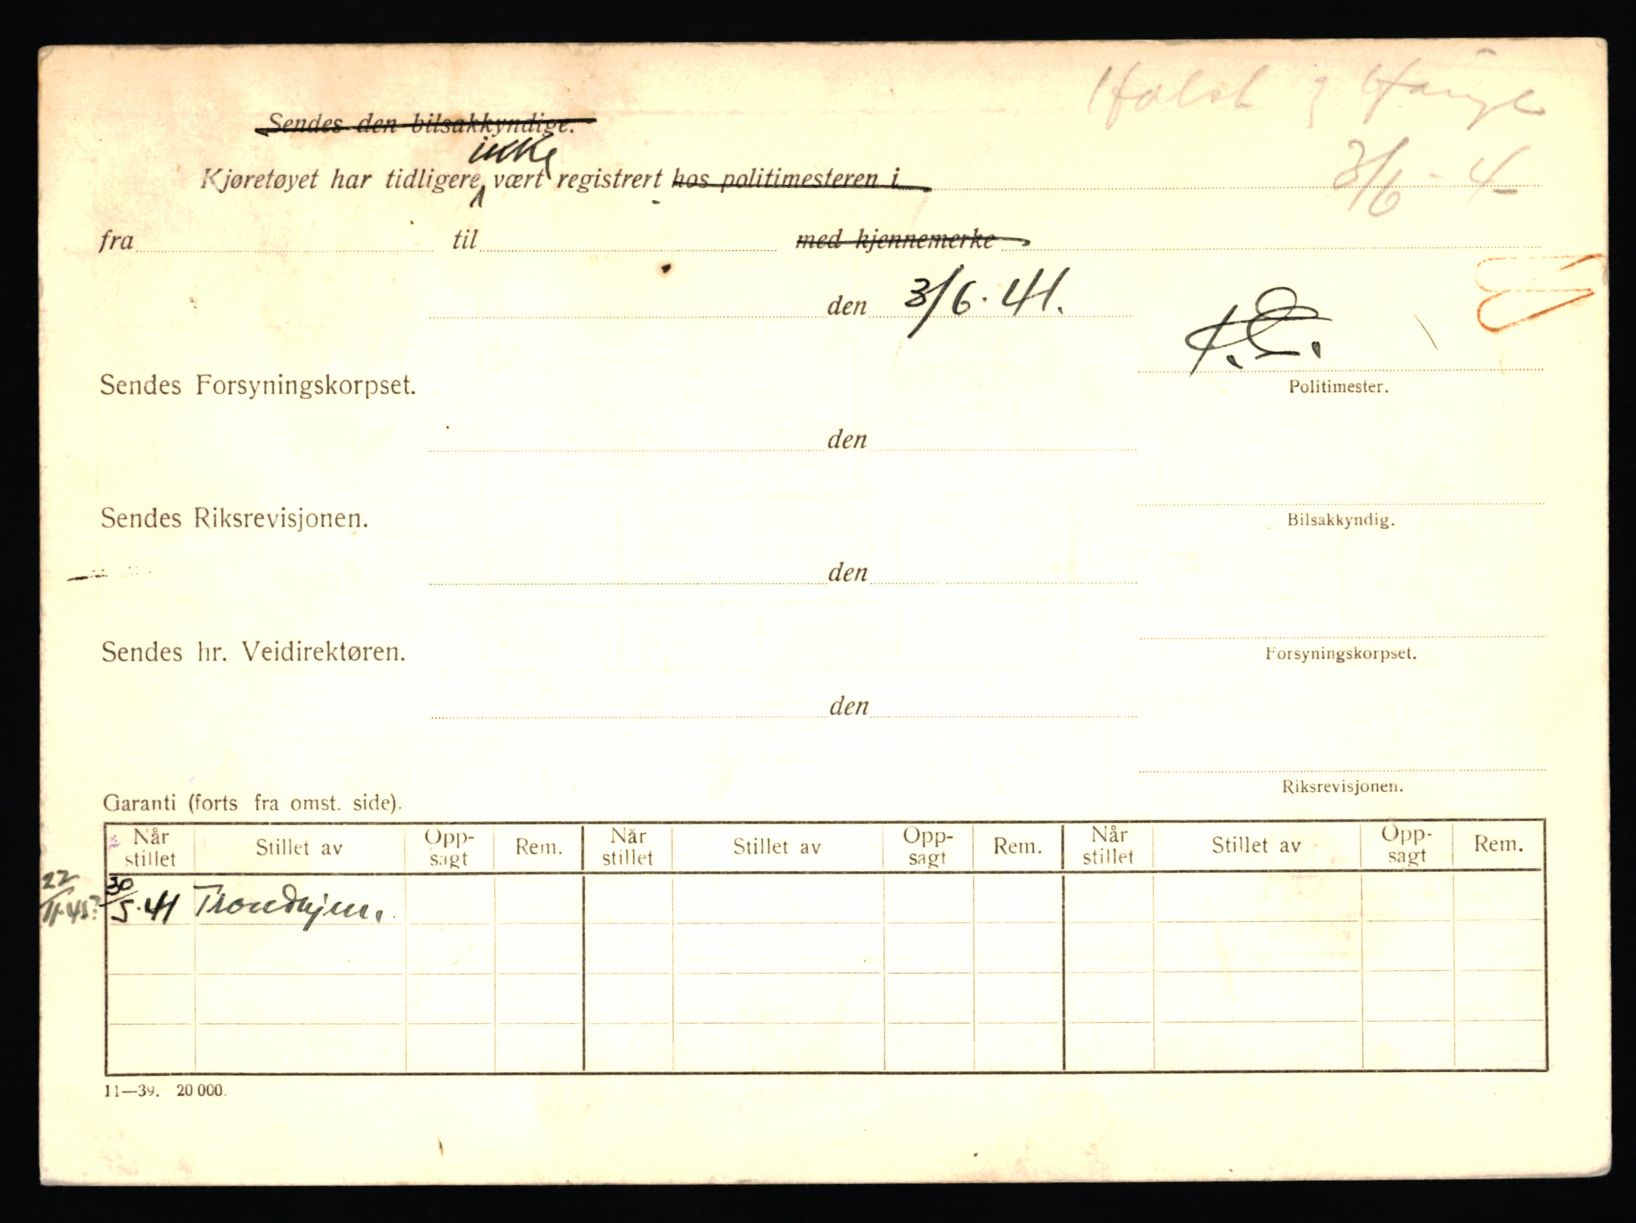 Sendes den bilsakkyndige.
ikke
Kjøretøyet har tidligere vært registrert hos politimesteren i
3/6 - 4
fra til med kjennemerke
den 3/6. 41.
Sendes Forsyningskorpset.
Politimester.
den
Sendes Riksrevisjonen.
Bilsakkyndig.
den
Sendes hr. Veidirektøren.
Forsyningskorpset.
den
Riksrevisjonen.
Garanti (forts fra omst. side).
Når stillet Stillet av Opp-sagt Rem. Når stillet Stillet av Opp-sagt Rem. Når stillet Stillet av Opp-sagt Rem.
22/11-45? 30/5.41 Trondhjem.
11—39. 20 000.